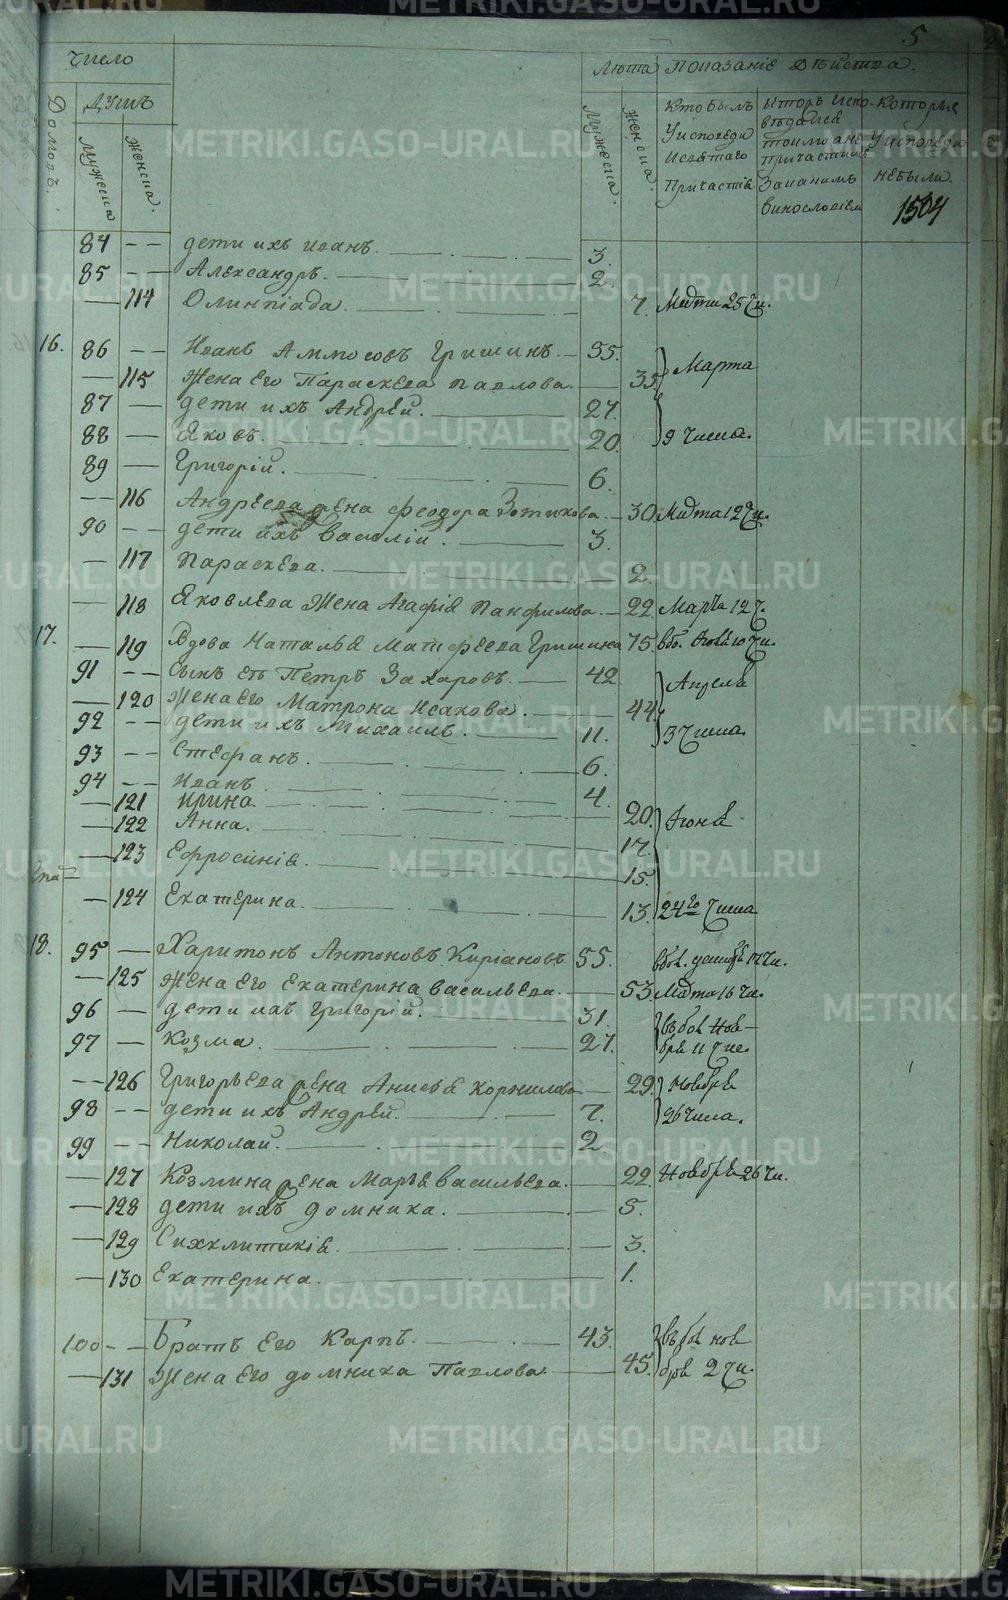 5
Число
Лѣта
Показаніе Дѣйства.
Домовъ.
Душъ
Мужеска
Женска.
Мужеска.
Женска.
Кто былъ
У исповѣди
И святаго
Причастія
Кторъ Испо-
вѣдался
тои мо а не
причастился
За какимъ
винословіем
Которыя
У исповѣди
небыли.
1504
84 -- дети ихъ Иванъ. 3.
85 -- Александръ. 2.
— 114 Олимпіада. 7. Марта 25 чи.
16. 86 -- Иванъ Аммосовъ Гришинъ. 35. Марта
— 115 Жена Его Параскева Павлова. 35.
87 — дети ихъ Андрей. 27.
88 — Яковъ. 20. 9 Числа.
89 — Григорій. 6.
-- 116 Андреева жена Феодора Зотикова. 30 Марта 12 чи.
90 -- дети ихъ Василій. 3.
— 117 Параскева. 2.
— 118 Яковлева Жена Агафія Панфилова. 22. Марта 12 ч.
17. — 119 Вдова Наталья Матфеева Гришина 75. 10 чи.
91 -- Сынъ Её Петръ Захаровъ. 42 Апреля
— 120 Жена Его Матрона Исакова. 44.
92 -- дети ихъ Михаилъ. 11. 3 Числа.
93 -- Стефанъ. 6.
94 -- Иванъ 4.
— 121 Ирина. 20. Іюня
— 122 Анна. 17.
— 123 Ефросинія. 15.
— 124 Екатерина. 13. 24го Числа
18. 95 — Харитонъ Антоновъ Киріановъ 55. 17 чи.
— 125 Жена Его Екатерина Васильева. 53 Марта 16 чи.
96 — дети ихъ Григорій. 31. въ 60й Ноя-
97 — Козма. 27. бря 11 Чис.
-- 126 Григорьева жена Анисья Корнилова 29. Ноября
98 -- дети ихъ Андрей. 7. 26 Числа.
99 -- Николай. 2
— 127 Козмина жена Марья Васильева. 22. Ноября 26 чи.
— 128 дети ихъ домника. 5.
— 129 Синклитикія. 3.
— 130 Екатерина. 1.
100 -- Братъ Его Карпъ. 43. ноя
— 131 Жена Его домника Павлова. 45. бря 2 чи.
METRIKI.GASO-URAL.RU